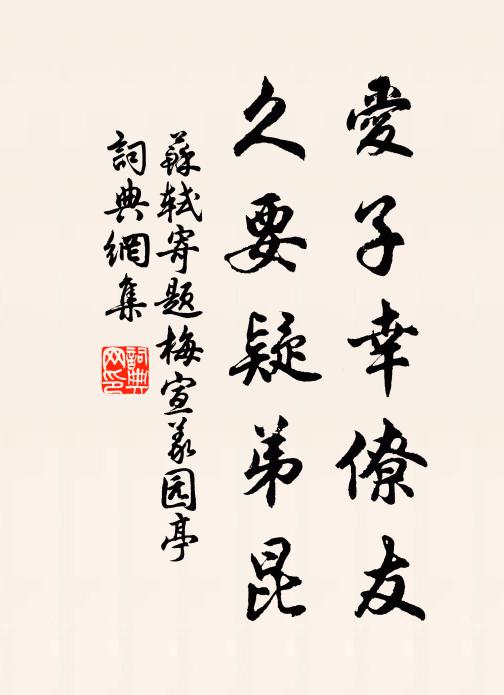 愛子幸僚友
久要疑弟昆
蘇軾寄題梅宣義园亭
詞典網集
詞典網印